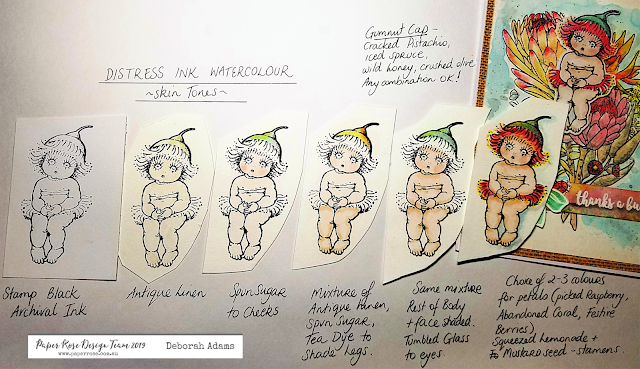 DISTRESS INK WATERCOLOUR
~skin Tones~
Gumnut Cap -
Cracked Pistachio,
iced spruce,
wild honey, crushed olive
Any combination OK!
thinks a bu
Stamp Black
Archival Ink
Antique Linen
Spun Sugar
to Cheeks
Mixture of
Antique Linen,
Spun Sugar,
Tea Dye to
Shade Legs.
Same mixture
Rest of Body
+ face shaded.
Tumbled Glass
to eyes.
Choice of 2-3 colours
for petals (picked Raspberry,
Abandoned Coral, Festive
Berries)
Squeezed Lemonade +
Mustard seed - stamens.
Paper Rose Design Team 2019
www.paperrose.com.au
Deborah Adams